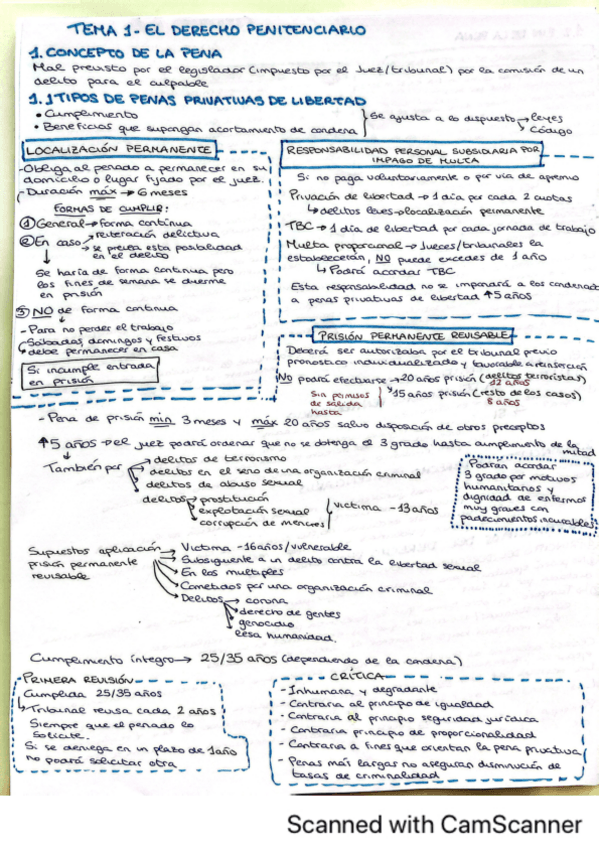 TEMA 1- EL DERECHO PENITENCIARIO
1. CONCEPTO DE LA PENA
Mal previsto por el legislador (impuesto por el Juez/tribunal) por la comisión de un
delito para el culpable
1.1 TIPOS DE PENAS PRIVATIVAS DE LIBERTAD
• Cumplimiento
• Beneficios que supongan acortamiento de condena
Se ajusta a lo dispuesto → leyes
Código
LOCALIZACIÓN PERMANENTE
- Obliga al penado a permanecer en su
domicilio o lugar fijado por el juez.
- Duración máx → 6 meses
FORMAS DE CUMPLIR:
① General → forma continua
② En caso → reiteración delictiva
→ se prevea esta posibilidad
en el delito
Se haría de forma continua pero
los fines de semana se duerme
en prisión
③ NO de forma continua
- Para no perder el trabajo
- Sábados, domingos y festivos
debe permanecer en casa
Si incumple entrada
en prisión
RESPONSABILIDAD PERSONAL SUBSIDIARIA POR
IMPAGO DE MULTA
Si no paga voluntariamente o por vía de apremio
Privación de libertad → 1 día por cada 2 cuotas
↳ delitos leves → localización permanente
TBC → 1 día de libertad por cada jornada de trabajo
Multa proporcional → Jueces/tribunales la
establecerán, NO puede excedes de 1 año
↳ Podrá acordar TBC
Esta responsabilidad no se impondrá a los condenados
a penas privativas de libertad ↑5 años
PRISIÓN PERMANENTE REVISABLE
Deberá ser autorizada por el tribunal previo
pronostico individualizado y favorable a reinserción
No podrá efectuarse → 20 años prisión (delitos terroristas)
12 años
Sin permisos
de salida
hasta
15 años prisión (resto de los casos)
8 años
- Pena de prisión min 3 meses y máx 20 años salvo disposición de otros preceptos
↑5 años → el juez podrá ordenar que no se obtenga el 3 grado hasta cumplimiento de la
mitad
También por → delitos de terrorismo
delitos en el seno de una organización criminal
delitos de abuso sexual
delitos → prostitución
explotación sexual
corrupción de menores
víctima -13 años
Podrán acordar
3 grado por motivos
humanitarios y
dignidad de enfermos
muy graves con
padecimientos incurables
Supuestos aplicación
prisión permanente
revisable
→ Victima -16 años/vulnerable
→ Subsiguiente a un delito contra la libertad sexual
→ En los multiples
Cometidos por una organización criminal
Delitos → corona
derecho de gentes
genocidio
lesa humanidad.
Cumplimiento íntegro → 25/35 años (dependiendo de la condena)
PRIMERA REVISIÓN
Cumplida 25/35 años
↳ Tribunal revisa cada 2 años
Siempre que el penado lo
solicite.
Si se deniega en un plazo de 1 año
no podrá solicitar otra
CRÍTICA
- Inhumana y degradante
- Contraria al principio de igualdad
- Contraria al principio seguridad jurídica
- Contraria principio de proporcionalidad
- Contraria a fines que orientan la pena privativa
- Penas más largas no aseguran disminución de
tasas de criminalidad
Scanned with CamScanner